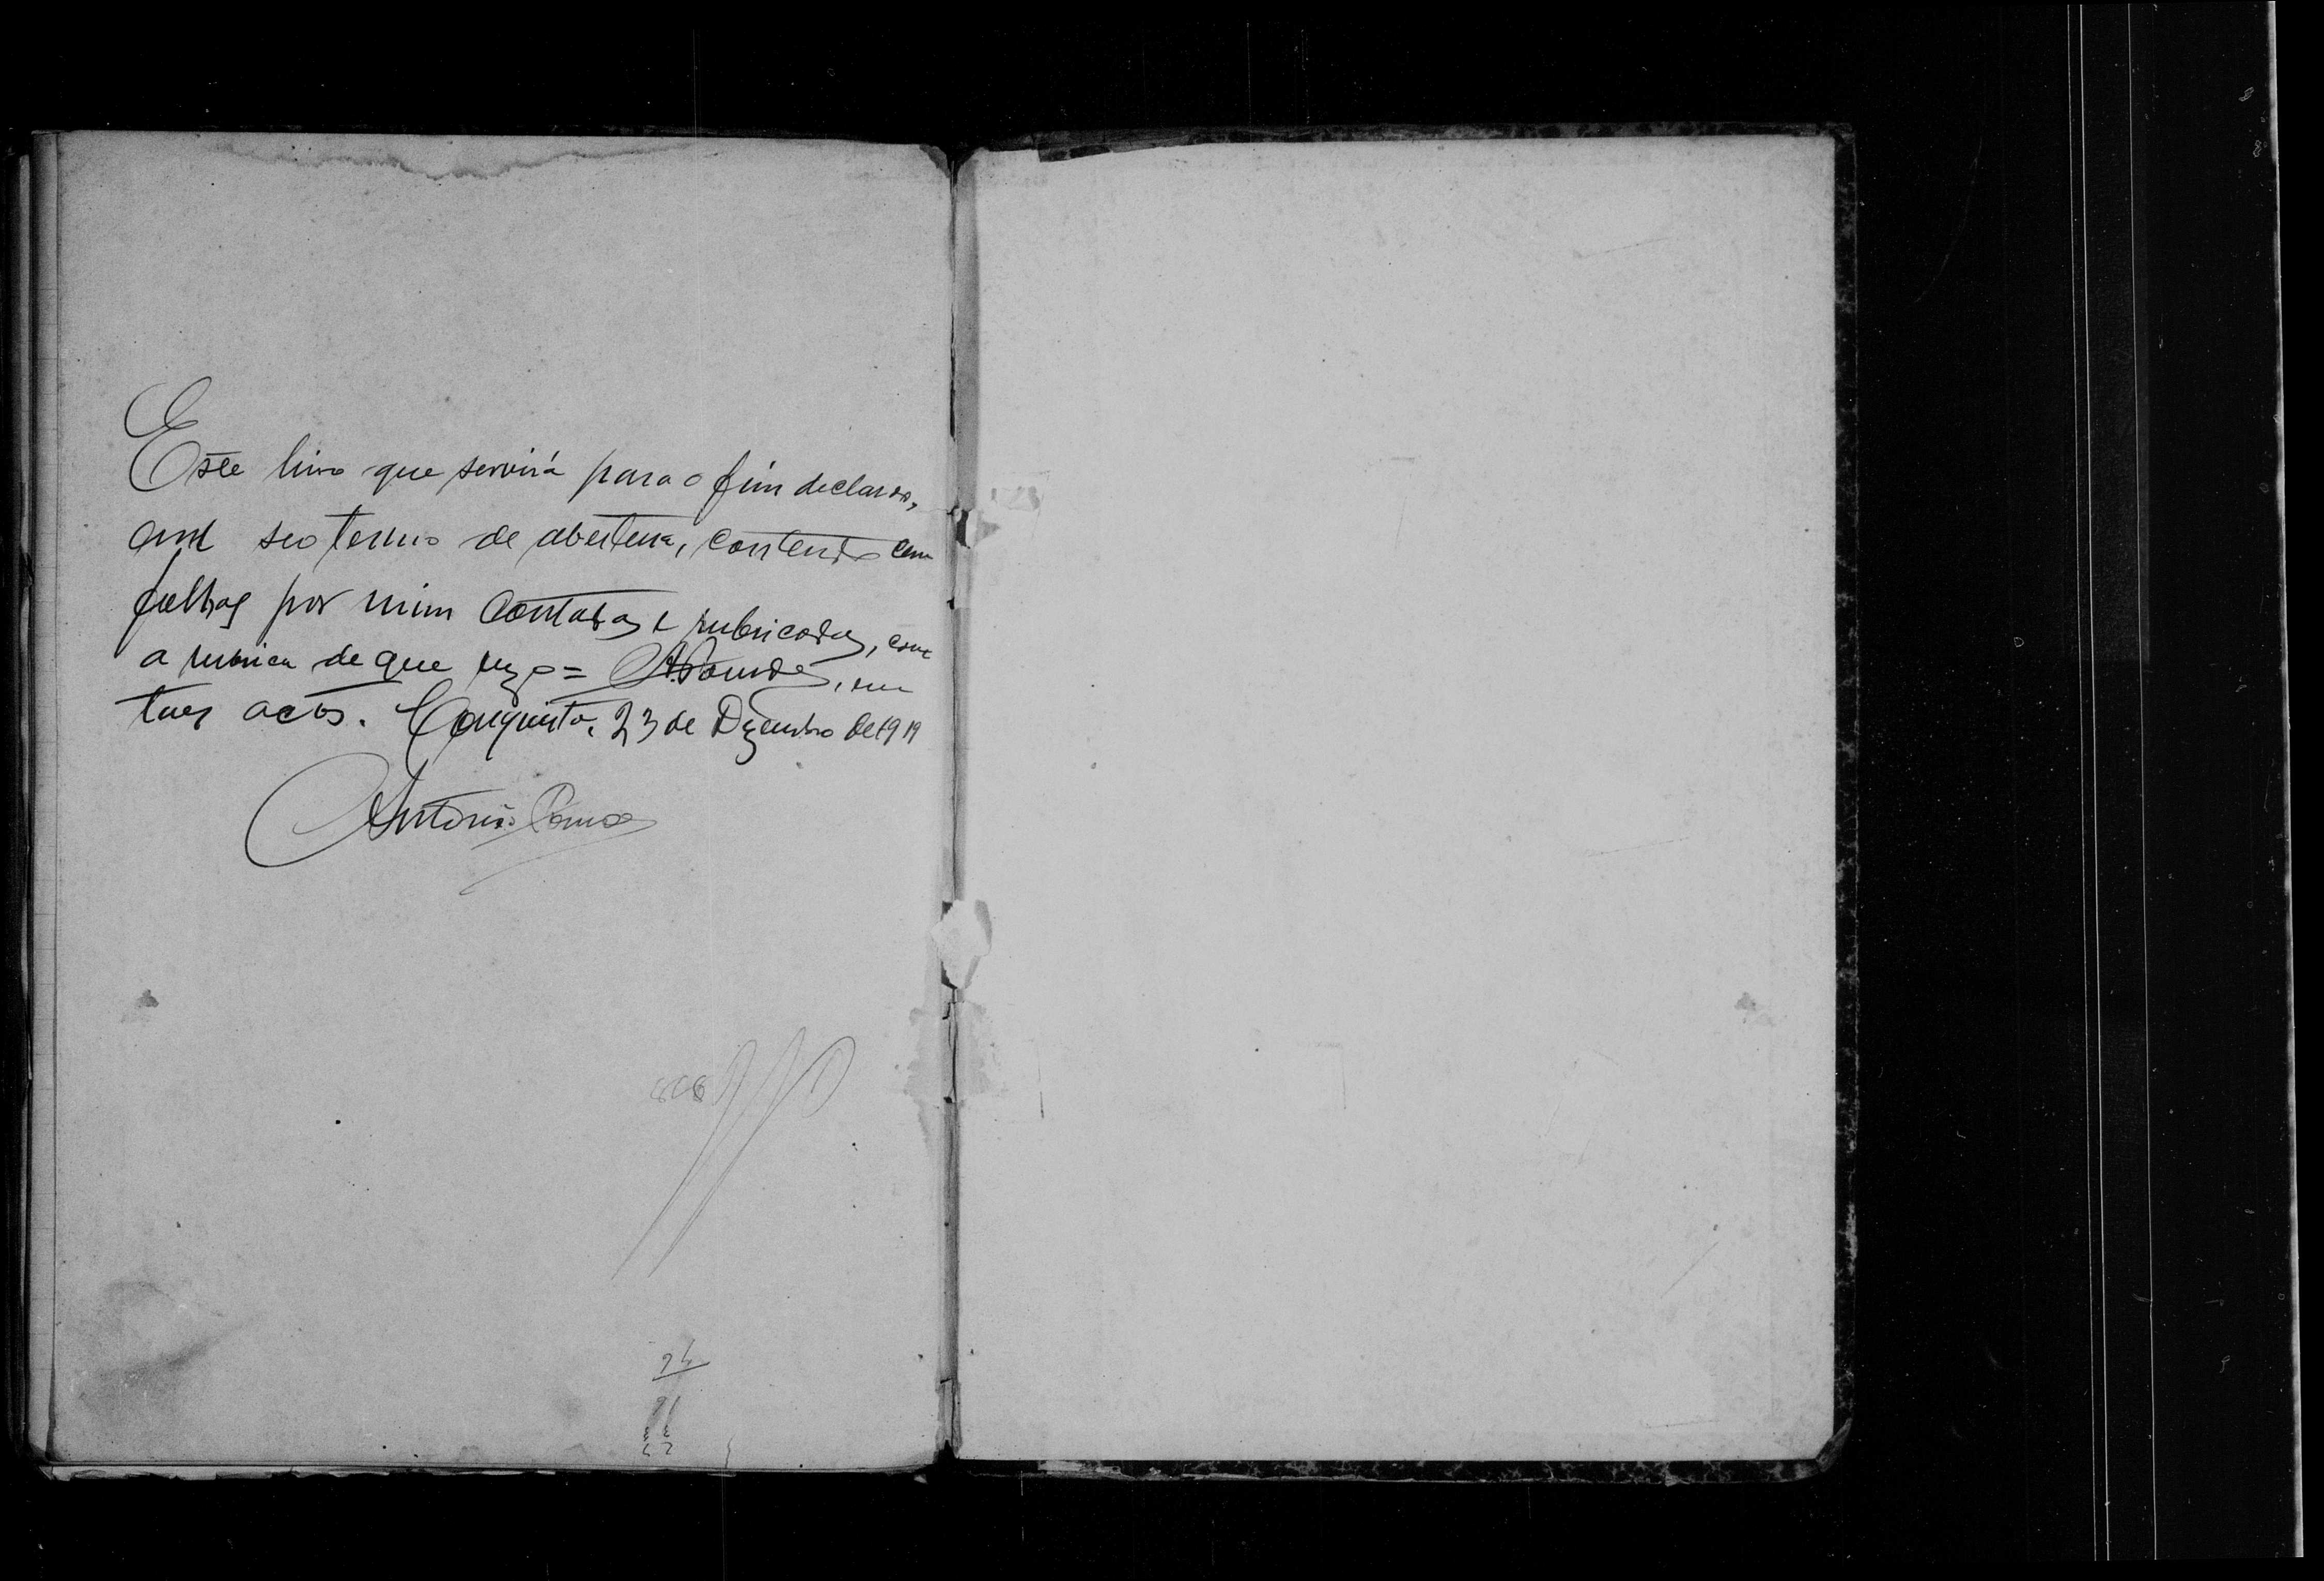 Este livro que servirá para o fim declarado,
em seo termo de abertura, contendo cem
folhas por mim contadas e rubricadas, com
a rubrica de que uzo =
taes actos. Conquista, 23 de Dezembro de 1919
Antonio